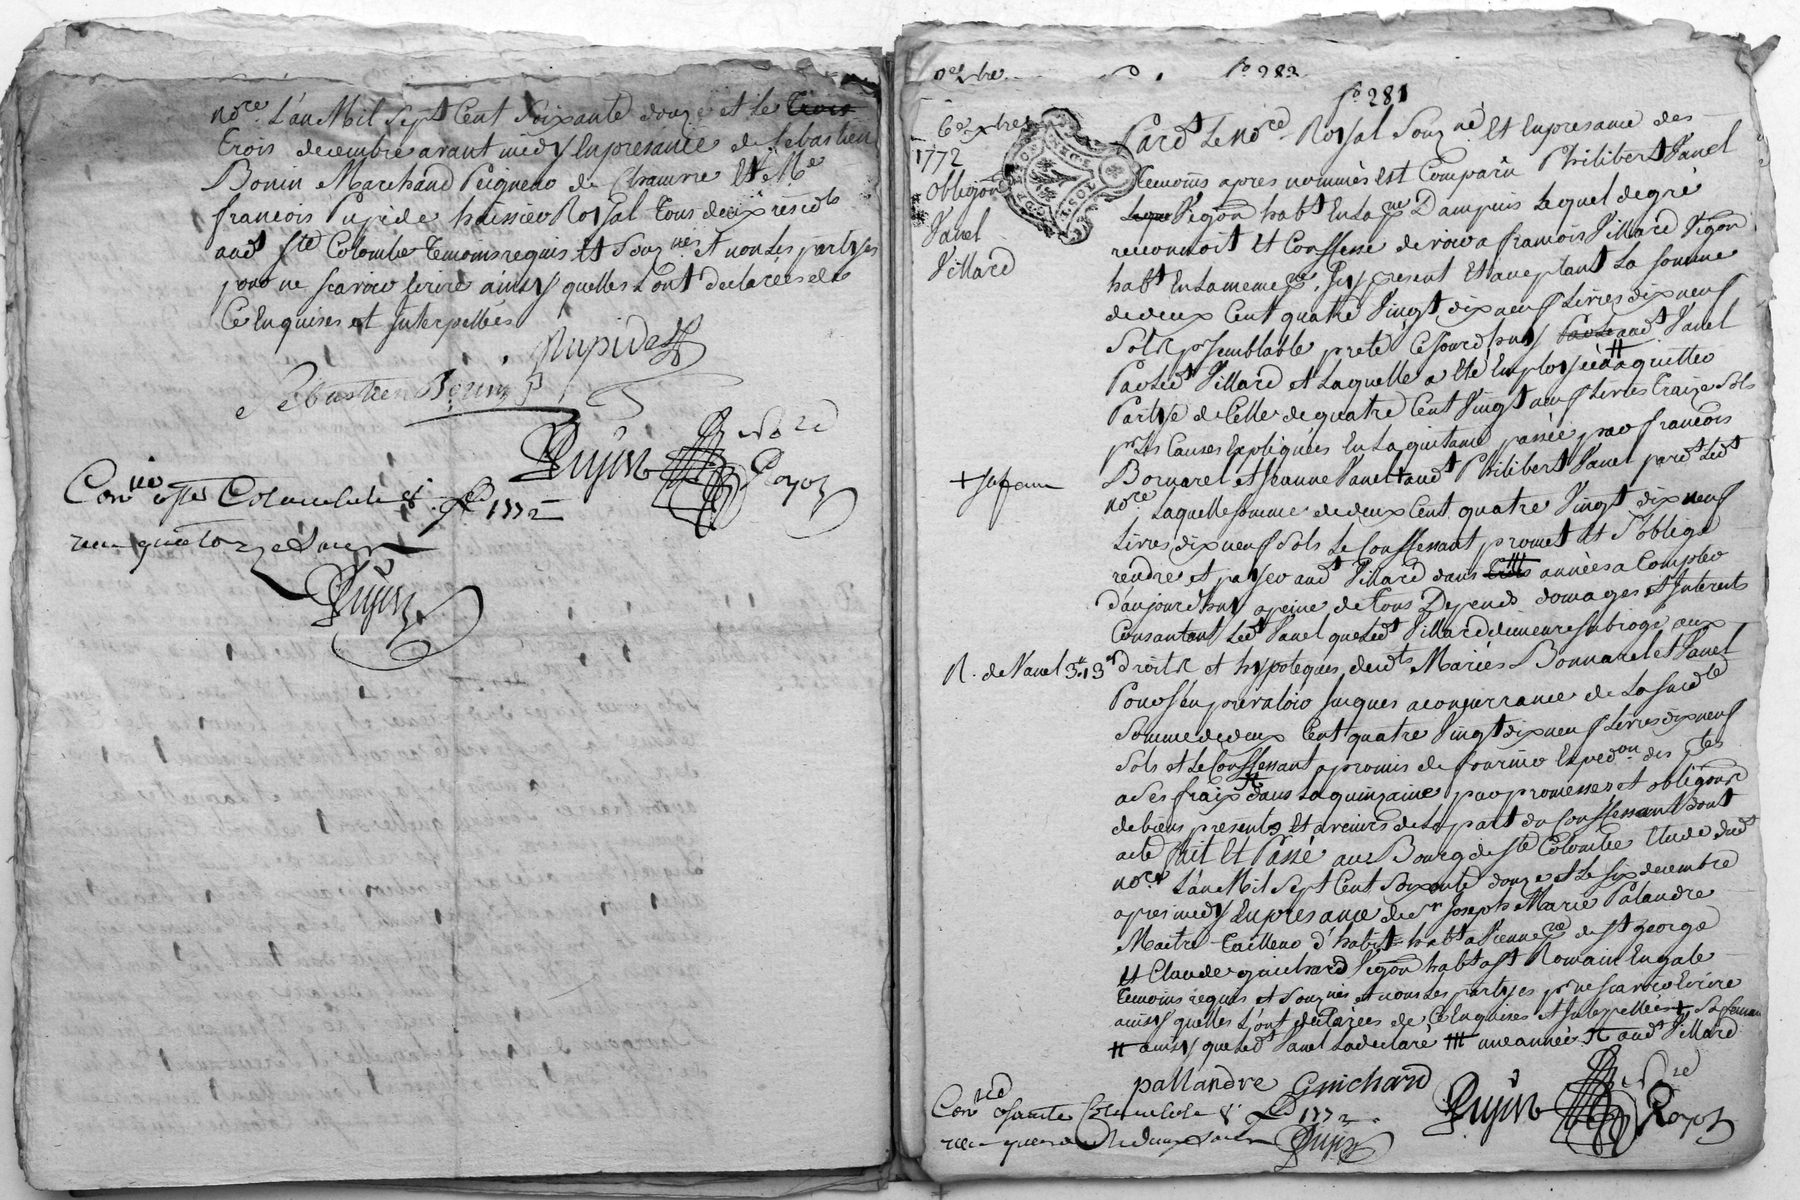 no.re L'an Mil Sept Cent Soixante douze et Le trois
trois decembre avant midy En presance de Sebastien
Bonin Marchand Peigneur de Chanvre Et Me
francois Pupide huissier Royal tous deux resid.ts
aud.t Ste Colombe temoins requis Et Souz.nes et non Les partyes
pour ne scavoir Ecrire ainsy quelles L'ont declarées de
Ce Enquises et Interpellées
Pupide
Sebastien Bonin
Dujin No.re Royal
Con.lé à Ste Colombe le 8 Xbre 1772
recu quatorze sols
Dujin
Xbre
f.o 282
f.o 281
6e Xbre
1772
obligõn
Vanel
Villard
Pard.t Le No.re Royal Souz.né Et En presance des
temoins apres nommés Est Comparu Philibert Vanel
Vigõn hab.t En La p.sse D'ampuis Lequel de gré
reconnoit Et Confesse devoir a francois Villard Vigõn
hab.t En La meme p.sse Icy present Et acceptant La Somme
de deux Cent quatre Vingt dix neuf Livres dix neuf
Sols p.r Semblable preté Cejourd'huy par Le aud.t Vanel
Par Led.t Villard et Laquelle a Eté Employée a aquitter
Partye de Celle de quatre Cent Vingt neuf Livres traize Sols
p.r Les Causes Expliquées En La quitance passée par francois
Bonnarel et Jeanne Vanel + aud.t Philibert Vanel pard.t Led.t
+ Sa femme
no.re, Laquelle Somme de deux Cent quatre Vingt dix neuf
Livres dix neuf Sols Le Confessant promet Et S'oblige
rendre et payer aud.t Villard dans trois années a Compter
d'aujourd'huy a peine de tous Depends domages et Interets
Consantant Led.t Vanel que Led.t Villard demeure Subrogé aux
R. de Vanel 3# 13s
droits et hypoteques desd.ts Mariés Bonnarel et Vanel
Pour S'en prevaloir Jusques a concurrance de La susd.te
Somme de deux Cent quatre Vingt dix neuf Livres dix neuf
Sols et Le Confessant a promis de fournir Exped.on des p.ntes
a Ses fraix dans La quinzaine par promesses et obligõns
de biens presents Et avenirs de La part du Confessant dont
acte fait Et Passé au Bourg de Ste Colombe Etude dud.t
no.re L'an Mil Sept Cent Soixante douze et Le Six decembre
apres midy En presance de S.r Joseph Marie Palandre
Maitre tailleur d'habits hab.t a Vienne rue de St george
Et Claude guichard Vigõn hab.t a St Romain En gale
temoins requis et Souz.nés et non Les partyes p.r ne Scavoir Ecrire
ainsy quelles L'ont declarées de Ce Enquises et Interpellées + Sa femme
# ainsy que Led.t Vanel La declaré ## une année # aud.t Villard
pallandre Guichard Dujin No.re Royal
Con.lé à Sainte Colombe le 8 Xbre 1772
recu quarante deux sols Dujin